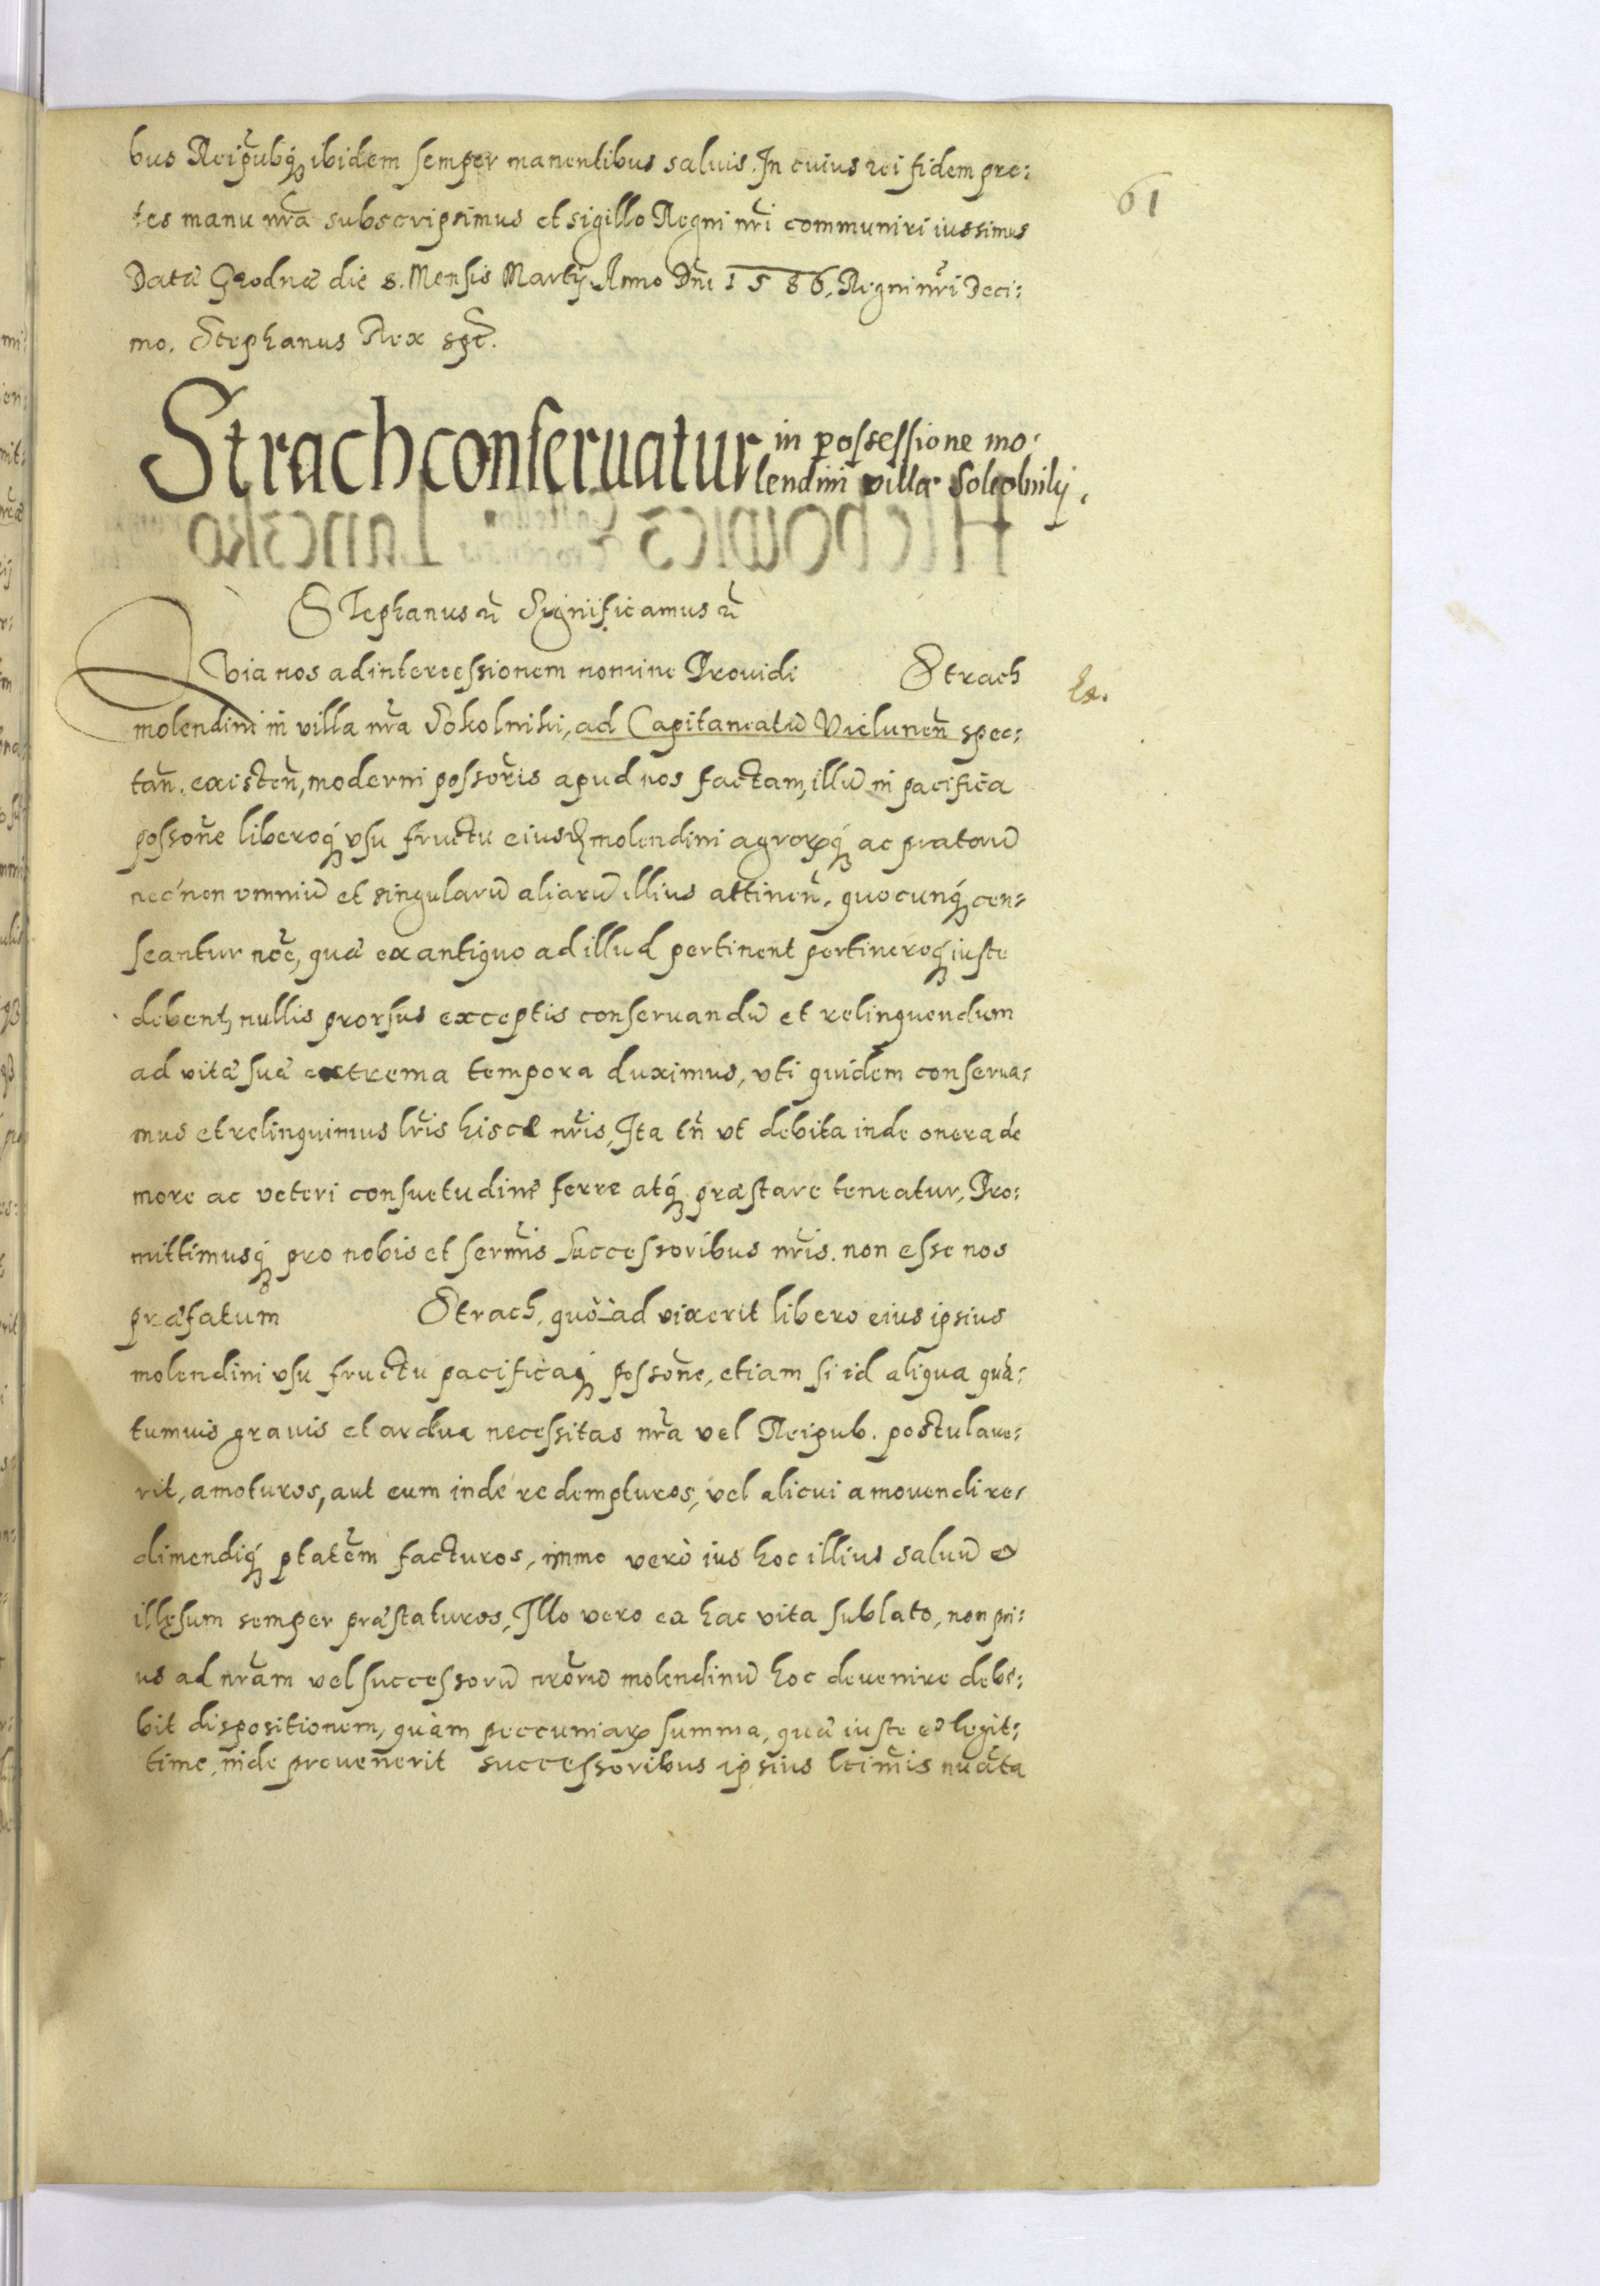 bus Reipubq́ ibidem semper manentibus saluis. In cuius rei fidem pre:
tes manu nrã subscripsimus et sigillo Regni nri communiri iussimus
Datũ Grodnæ die 8. Mensis Martij. Anno Dñi 1586, Regni nri Deci:
mo. Stephanus Rex sst.
61
Strach conseruatur in possessione mo:
lendini villæ Sokolniky.
STephanus &c Significamus &c
Quia nos ad intercessionem nomine Prouidi Strach
molendini in villa nrã Sokolniki, ad Capitaneatũ Vielunen̄ spec:
tan̄. existen̄, moderni possoris apud nos factam, illũ in pacifica
possone liberoq́ vsu fructu eiusđ molendini agrorũq́ ac pratorũ
nec non omniũ et singularũ aliarũ illius attinen̄. quocunq́ cen:
seantur noe, quæ ex antiquo ad illud pertinent pertinereq́ iuste
debent, nullis prorsus exceptis conseruandũ et relinquendum
ad vitæ suæ extrema tempora duximus, vti quidem conserua:
mus et relinquimus lris hisce nris, Ita tn̄ vt debita inde onera de
more ac veteri consuetudine ferre atq́ præstare teneatur, Pro:
mittimusq́ pro nobis et sermis Successoribus nris. non esse nos
præfatum Strach, quoad vixerit libero eius ipsius
molendini vsu fructu pacificaq́ possone, etiam si id aliqua quã:
tumuis grauis et ardua necessitas nrã vel Reipub. postulaue:
rit, amoturos, aut eum inde redempturos, vel alicui amouendi re:
dimendiq́ ptatem facturos, immo verò ius hoc illius saluũ et
illęsum semper præstaturos, Illo vero ex hac vita sublato, non pri:
us ad nrãm vel successorũ nrorũ molendinũ hoc deuenire debe:
bit dispositionem, quàm peccuniarũ summa, quæ iuste et legit:
time, inde prouenerit successoribus ipsius ltimis nuãta